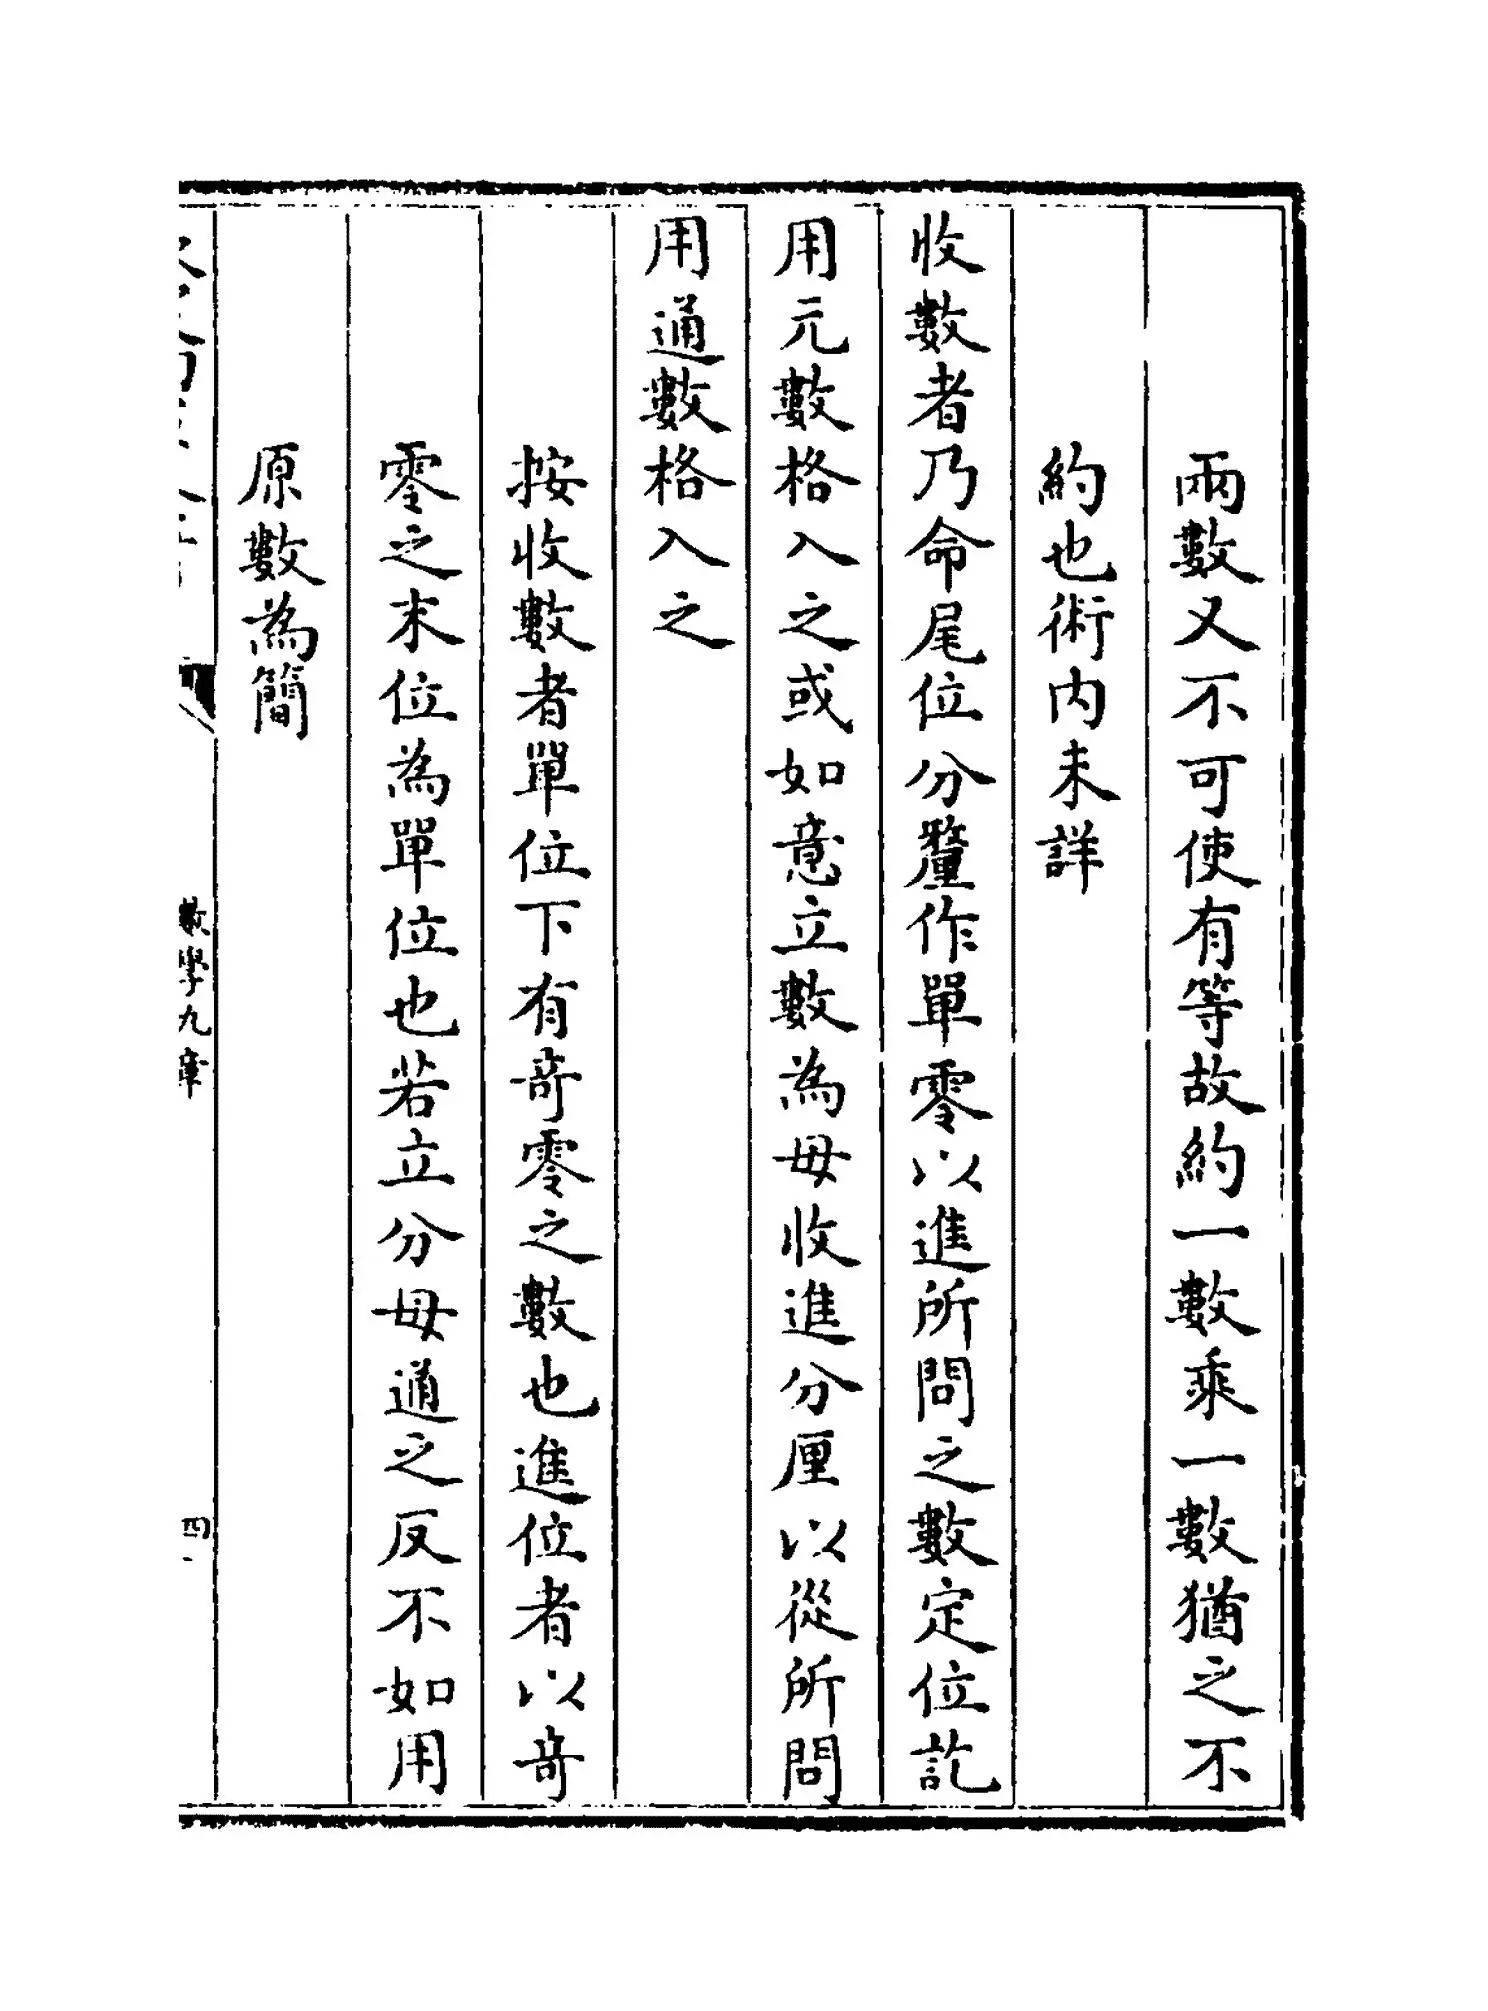 兩數又不可使有等故約一數乘一數猶之不
約也術内未詳
收數者乃命尾位分釐作單零以進所問之數定位訖
用元數格入之或如意立數為母收進分厘以從所問
用通數格入之
按收數者單位下有竒零之數也進位者以竒
零之末位為單位也若立分母通之反不如用
原數為簡
數學九章
四